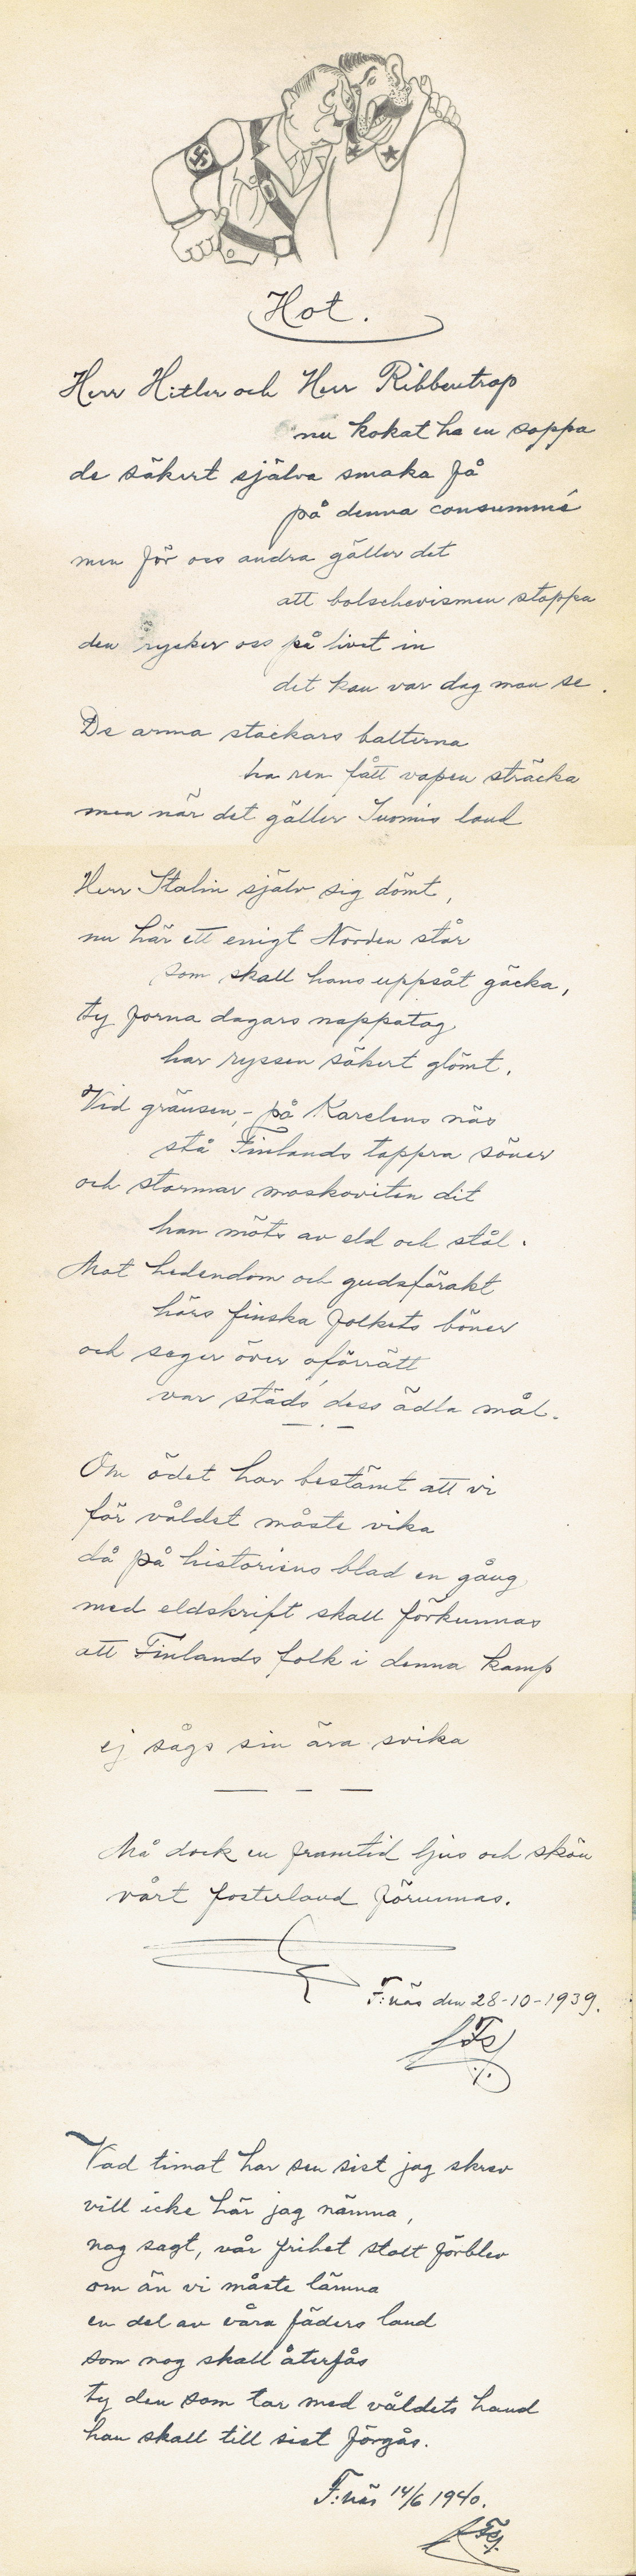 Hot.
Herr Hitler och Herr Ribbentrop
nu kokat ha en soppa
de säkert själva smaka få
på denna consummé
men för oss andra gäller det
att bolschevismen stoppa
den rycker oss på livet in
det kan var dag man se.
De arma stackars balterna
ha ren fått vapen sträcka
men när det gäller Suomis land
Herr Stalin själv sig dömt,
nu här ett enigt Norden står
som skall hans uppsåt gäcka,
ty forna dagars nappatag
har ryssen säkert glömt.
Vid gränsen, - på Karelens näs
stå Finlands tappra söner
och stormar moskoviten dit
han möts av eld och stål.
Mot hedendom och gudsförakt
hörs finska folkets böner
och seger över oförrätt
var städs dess ädla mål.
Om ödet har bestämt att vi
för våldet måste vika
då på historiens blad en gång
med eldskrift skall förkunnas
att Finlands folk i denna kamp
ej sågs sin ära svika
Må dock en framtid ljus och skön
vårt fosterland förunnas.
F:näs den 28-10-1939.
Vad timat har sen sist jag skrev
vill icke här jag nämna,
nog sagt, vår frihet stolt förblev
om än vi måste lämna
en del av våra fäders land
som nog skall återfås
ty den som tar med våldets hand
han skall till sist förgås.
F:näs 14/6 1940.